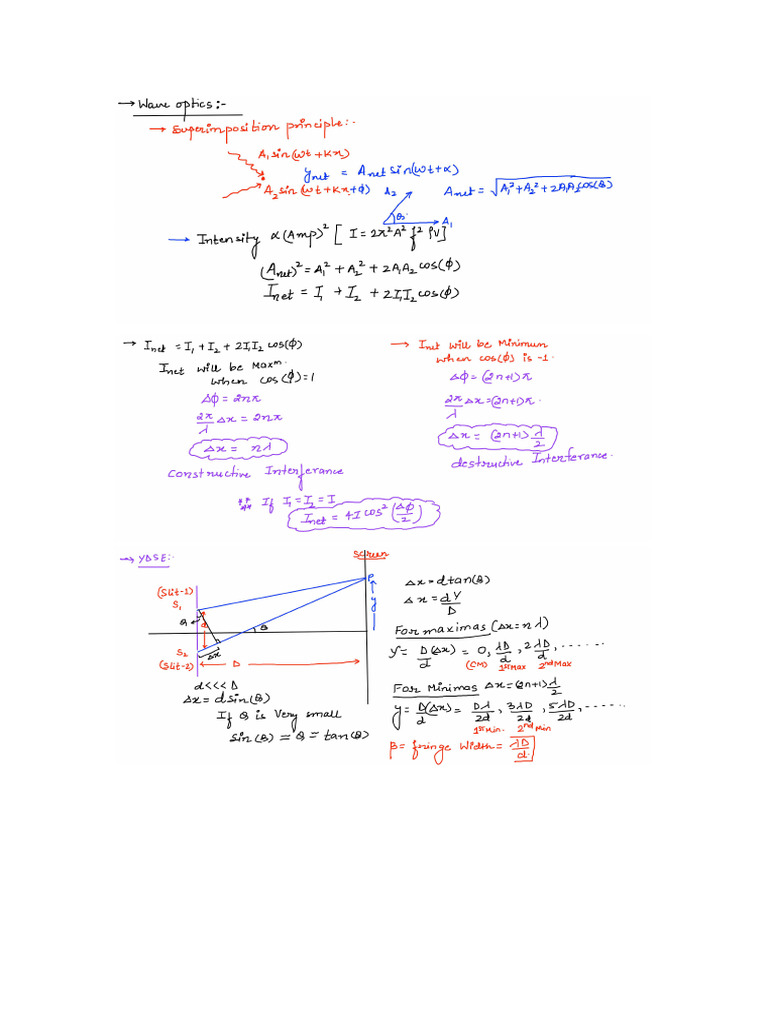 → Wave optics:-
→ Superimposition principle:-
A₁sin(wt+Kx)
y_net = A_net sin(wt+α)
A₂sin(wt+Kx+ϕ)
A₂
A_net = √(A₁²+A₂²+2A₁A₂cos(θ))
θ
A₁
→ Intensity α(Amp)² [I=2π²A²f²ρV]
(A_net)² = A₁² + A₂² + 2A₁A₂cos(ϕ)
I_net = I₁ + I₂ + 2I₁I₂cos(ϕ)
→ I_net = I₁+I₂ + 2I₁I₂cos(ϕ)
I_net will be Maxᵐ.
when cos(ϕ)=1
Δϕ = 2nπ
2π/λ Δx = 2nπ
Δx = nλ
Constructive Interferance
**** If I₁=I₂=I
I_net = 4I cos²(Δϕ/2)
→ Inet will be Minimum
when cos(ϕ) is -1.
Δϕ=(2n+1)π
2π/λ Δx=(2n+1)π.
Δx = (2n+1)λ/2
destructive Interferance.
→ YDSE:-
Screen
(Slit-1)
S₁
P
y
θ
d
θ
Δx
S₂
(Slit-2)
D
d<<<D
Δx = dsin(θ)
If θ is very small
sin(θ) = θ = tan(θ)
Δx = dtan(θ)
Δx = dY/D
For maximas (Δx=nλ)
Y = D(Δx)/d = 0, λD/d, 2λD/d, ......
(CM) 1ˢᵗMax 2ⁿᵈMax
For Minimas Δx=(2n+1)λ/2
y = D(Δx)/d = Dλ/2d, 3λD/2d, 5λD/2d, .....
1ˢᵗMin. 2ⁿᵈMin
β = fringe width = λD/d.